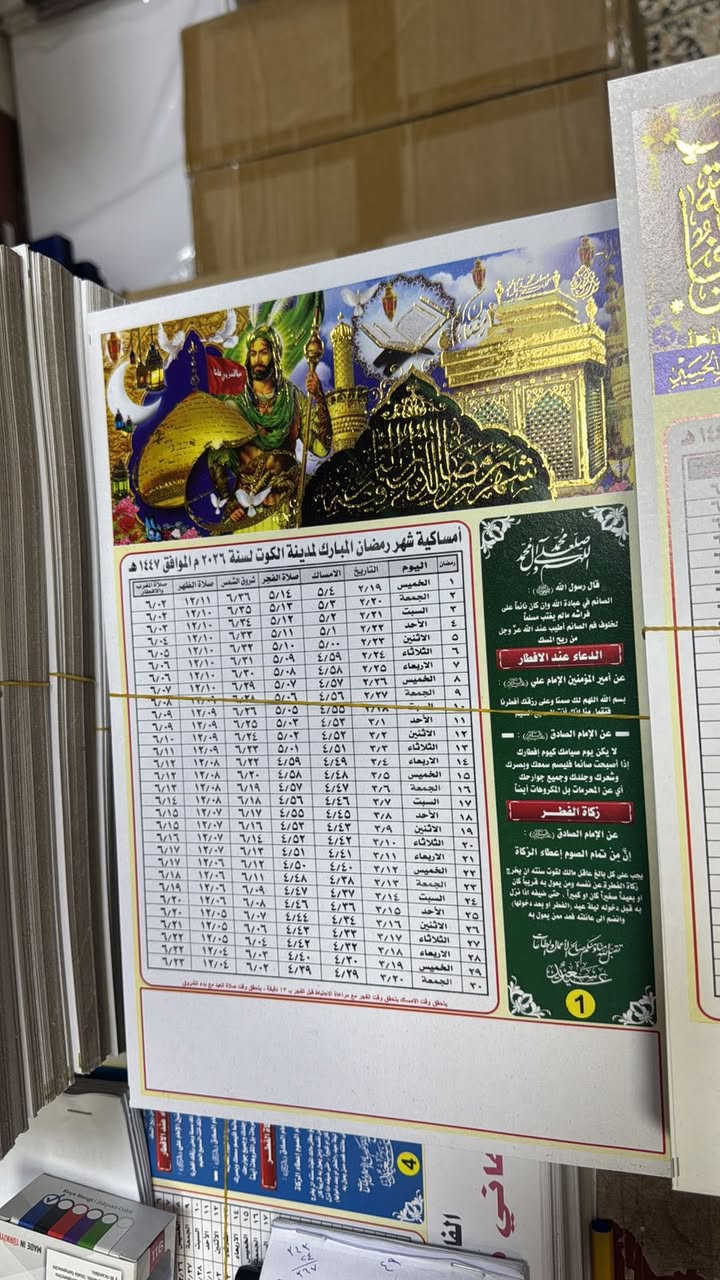 أمساكية شهر رمضان المبارك لمدينة الكوت لسنة ٢٠٢٦ م الموافق ١٤٤٧ هـ
رمضان اليوم التاريخ الامساك صلاة الفجر شروق الشمس صلاة الظهر صلاة المغرب والافطار
١ الخميس ٢/١٩ ٥/٤ ٥/١٤ ٦/٣٦ ١٢/١١ ٦/٠٢
٢ الجمعة ٢/٢٠ ٥/٣ ٥/١٣ ٦/٣٥ ١٢/١٠ ٦/٠٣
٣ السبت ٢/٢١ ٥/٢ ٥/١٢ ٦/٣٤ ١٢/١٠ ٦/٠٣
٤ الأحد ٢/٢٢ ٥/١ ٥/١١ ٦/٣٣ ١٢/١٠ ٦/٠٤
٥ الاثنين ٢/٢٣ ٥/٠٠ ٥/١٠ ٦/٣٢ ١٢/١٠ ٦/٠٥
٦ الثلاثاء ٢/٢٤ ٤/٥٩ ٥/٠٩ ٦/٣١ ١٢/١٠ ٦/٠٦
٧ الاربعاء ٢/٢٥ ٤/٥٨ ٥/٠٨ ٦/٣٠ ١٢/١٠ ٦/٠٦
٨ الخميس ٢/٢٦ ٤/٥٧ ٥/٠٧ ٦/٢٩ ١٢/١٠ ٦/٠٧
٩ الجمعة ٢/٢٧ ٤/٥٦ ٥/٠٦ ١٢/٠٩ ٦/٠٨
١٠ السبت ٢/٢٨ ٤/٥٥ ٥/٠٥ ١٢/٠٩ ٦/٠٩
١١ الأحد ٣/١ ٤/٥٣ ٥/٠٣ ٦/٢٥ ١٢/٠٩ ٦/٠٩
١٢ الاثنين ٣/٢ ٤/٥٢ ٥/٠٢ ٦/٢٤ ١٢/٠٩ ٦/١٠
١٣ الثلاثاء ٣/٣ ٤/٥١ ٥/٠١ ٦/٢٣ ١٢/٠٨ ٦/١١
١٤ الاربعاء ٣/٤ ٤/٤٩ ٤/٥٩ ٦/٢٢ ١٢/٠٨ ٦/١٢
١٥ الخميس ٣/٥ ٤/٤٨ ٤/٥٨ ٦/٢٠ ١٢/٠٨ ٦/١٢
١٦ الجمعة ٣/٦ ٤/٤٧ ٤/٥٧ ٦/١٩ ١٢/٠٨ ٦/١٣
١٧ السبت ٣/٧ ٤/٤٦ ٤/٥٦ ٦/١٨ ١٢/٠٨ ٦/١٤
١٨ الأحد ٣/٨ ٤/٤٥ ٤/٥٥ ٦/١٧ ١٢/٠٧ ٦/١٥
١٩ الاثنين ٣/٩ ٤/٤٣ ٤/٥٣ ٦/١٦ ١٢/٠٧ ٦/١٥
٢٠ الثلاثاء ٣/١٠ ٤/٤٢ ٤/٥٢ ٦/١٤ ١٢/٠٧ ٦/١٦
٢١ الاربعاء ٣/١١ ٤/٤١ ٤/٥١ ٦/١٣ ١٢/٠٧ ٦/١٧
٢٢ الخميس ٣/١٢ ٤/٤٠ ٤/٥٠ ٦/١٢ ١٢/٠٦ ٦/١٧
٢٣ الجمعة ٣/١٣ ٤/٣٨ ٤/٤٨ ٦/١١ ١٢/٠٦ ٦/١٨
٢٤ السبت ٣/١٤ ٤/٣٧ ٤/٤٧ ٦/٠٩ ١٢/٠٦ ٦/١٩
٢٥ الأحد ٣/١٥ ٤/٣٦ ٤/٤٦ ٦/٠٨ ١٢/٠٦ ٦/٢٠
٢٦ الاثنين ٣/١٦ ٤/٣٤ ٤/٤٤ ٦/٠٧ ١٢/٠٥ ٦/٢٠
٢٧ الثلاثاء ٣/١٧ ٤/٣٣ ٤/٤٣ ٦/٠٥ ١٢/٠٥ ٦/٢١
٢٨ الاربعاء ٣/١٨ ٤/٣٢ ٤/٤٢ ٦/٠٤ ١٢/٠٥ ٦/٢٢
٢٩ الخميس ٣/١٩ ٤/٣٠ ٤/٤٠ ٦/٠٣ ١٢/٠٤ ٦/٢٢
٣٠ الجمعة ٣/٢٠ ٤/٢٩ ٤/٣٩ ٦/٠٢ ١٢/٠٤ ٦/٢٣
قال رسول الله :
الصائم في عبادة الله وإن كان نائماً على
فراشه مالم يغتب مسلماً
لخلوف فم الصائم أطيب عند الله عزَّ وجل
من ريح المسك
الدعاء عند الافطار
عن أمير المؤمنين الإمام علي :
بسم الله اللهم لك صمنا وعلى رزقك أفطرنا
عن الإمام الصادق :
لا يكن يوم صيامك كيوم إفطارك
إذا أصبحت صائما فليصم سمعك وبصرك
وشعرك وجلدك وجميع جوارحك
أي عن المحرمات بل المكروهات أيضاً
زكاة الفطر
عن الإمام الصادق :
إنَّ مِنْ تمام الصوم إعطاء الزكاة
يجب على كل بالغ عاقل مالك لقوت سنته ان يخرج
زكاة الفطرة عن نفسه ومن يعول به قريباً كان
او بعيداً صغيراً كان او كبيراً ، حتى ضيفه اذا نزل
به قبل دخوله ليلة عيد (الفطر او بعد دخولها)
وانضم الى عائلته فعد ممن يعول به
1
4
MADE IN TÜRKİYE